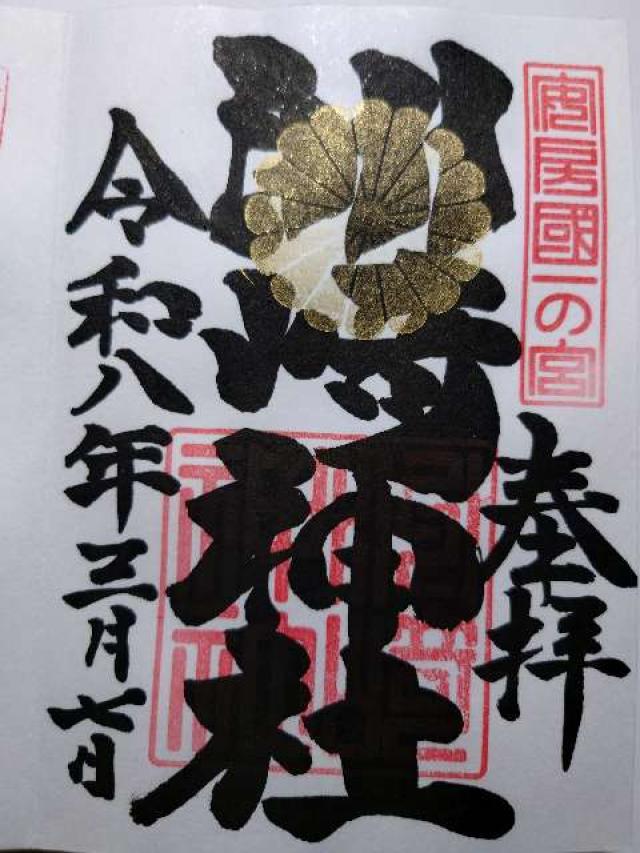 安房國一の宮
奉拝
洲崎神社
令和八年三月七日